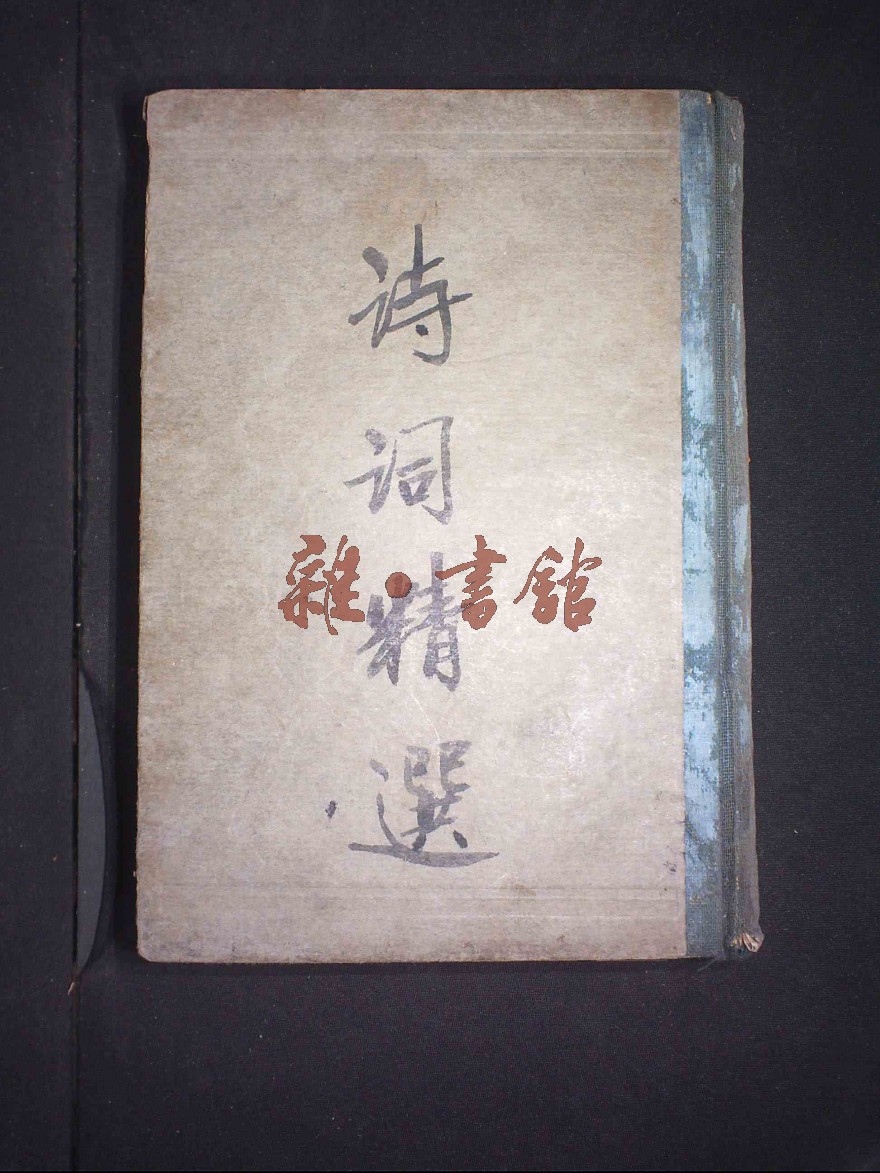 诗词精選
雜·書館